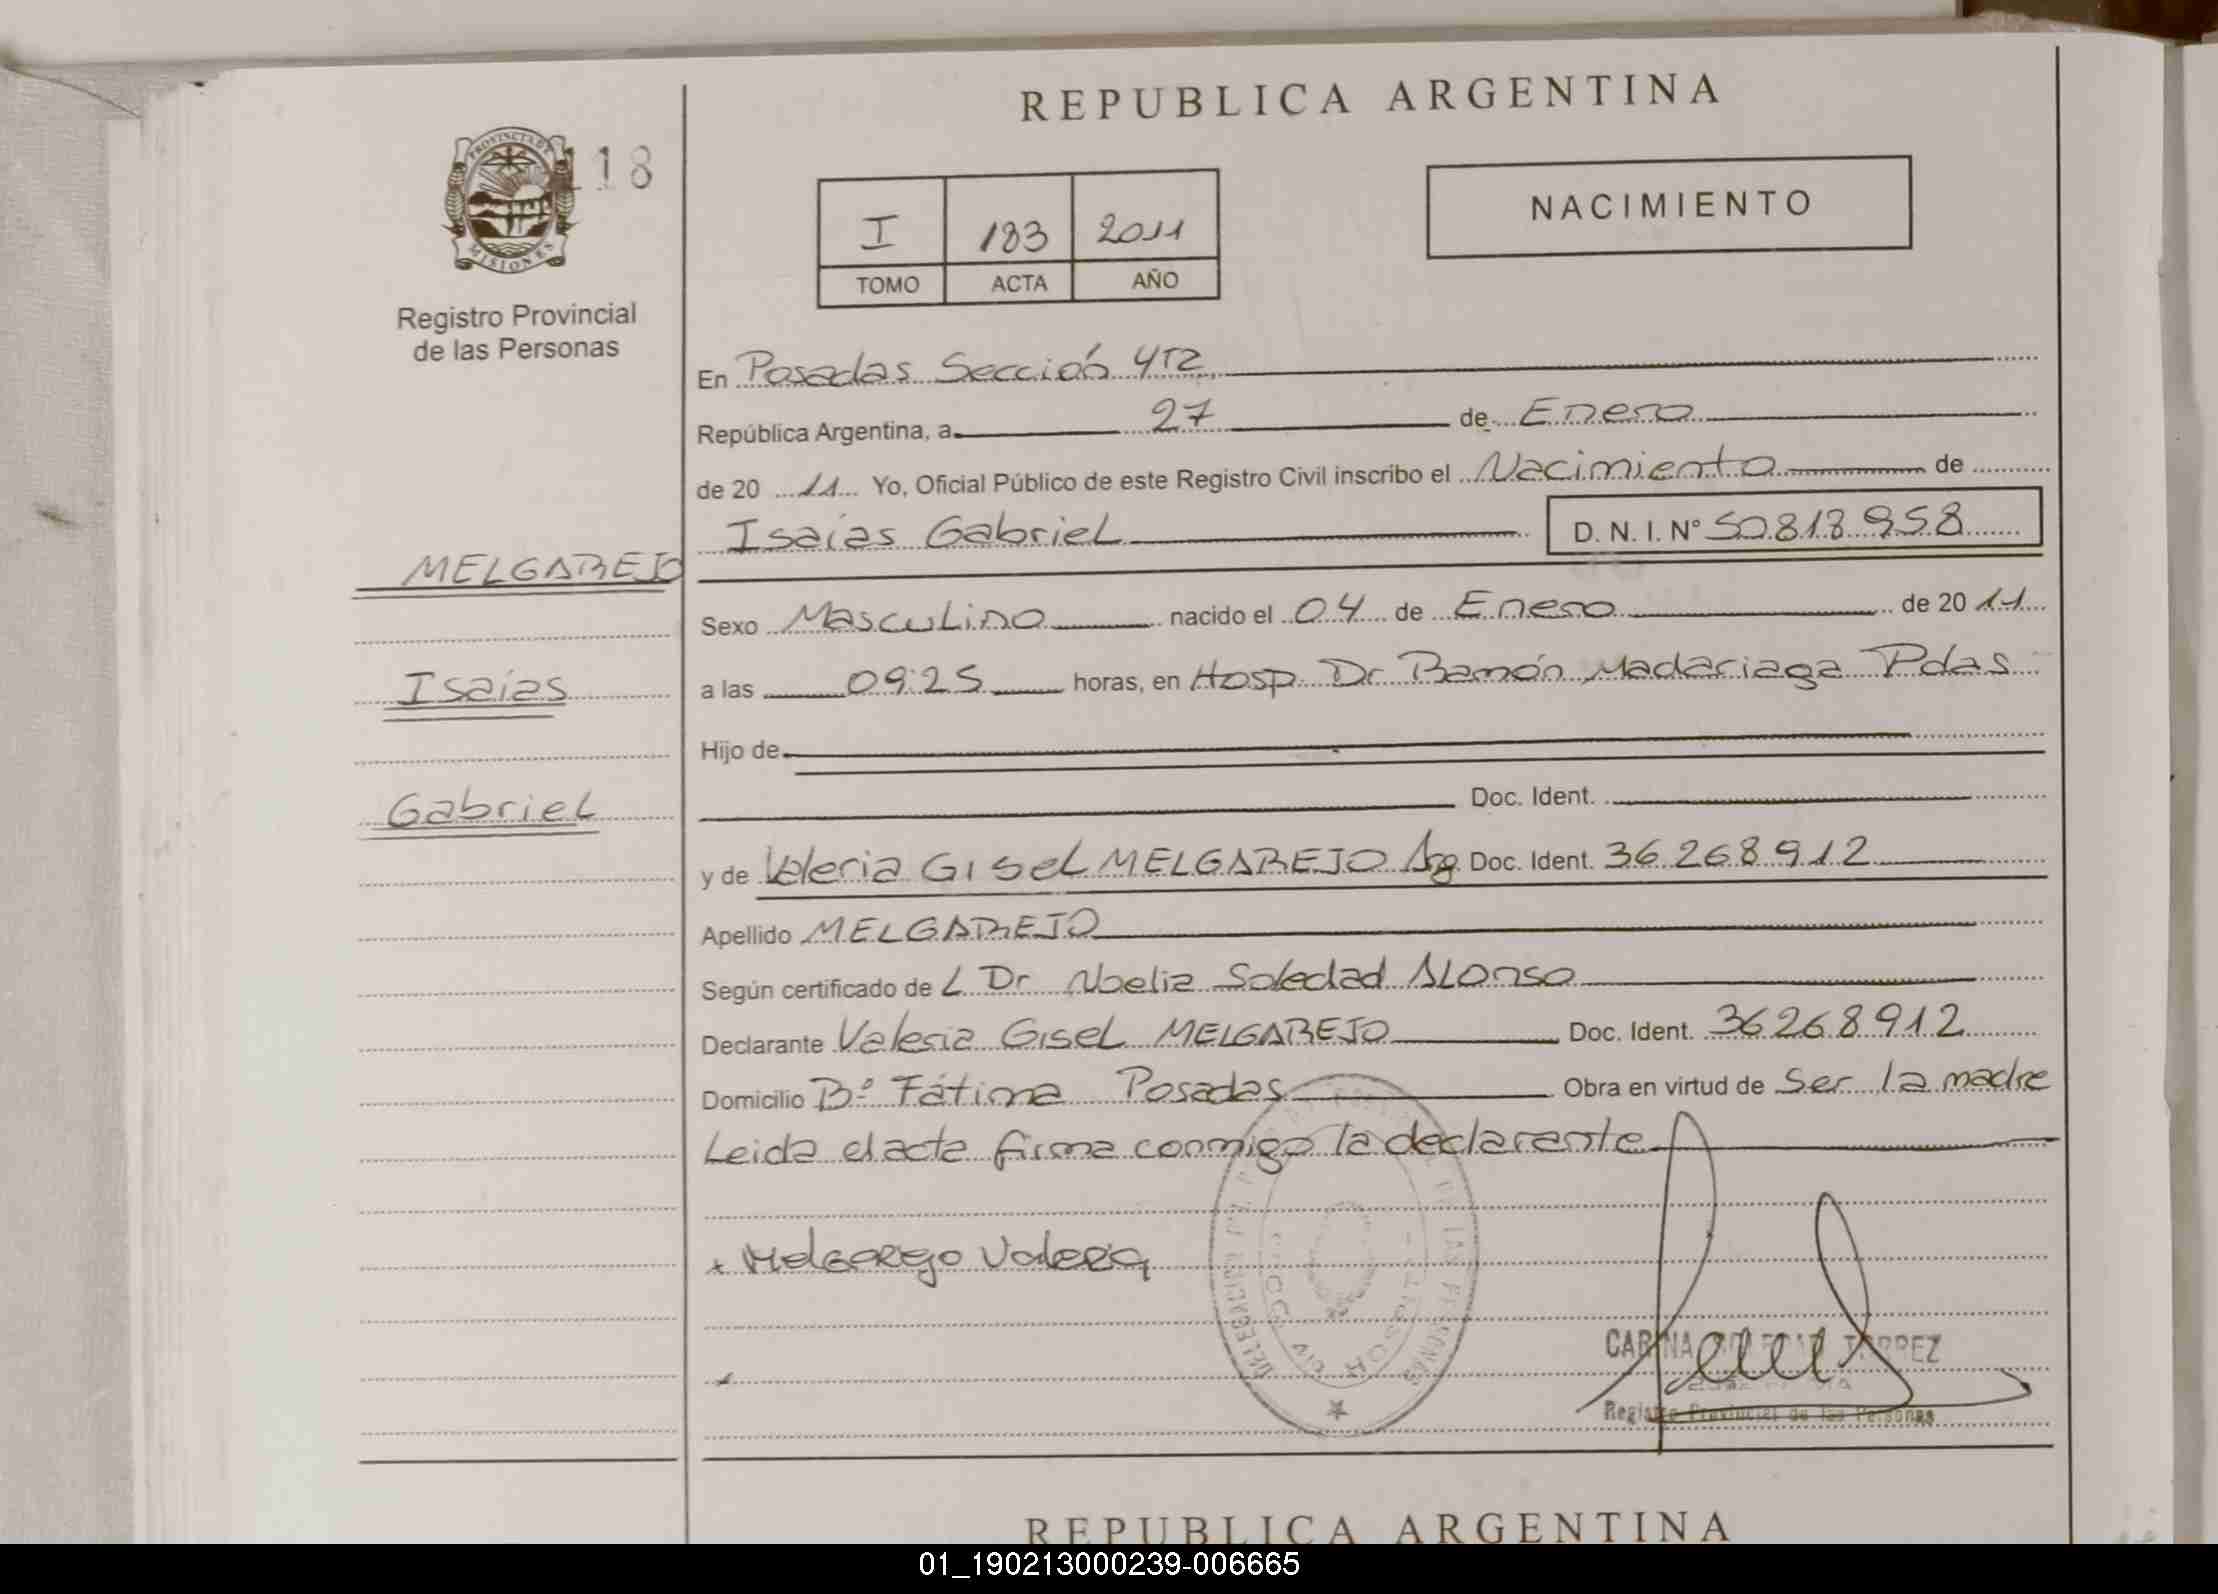 REPUBLICA ARGENTINA
PROVINCIA DE MISIONES
118
Registro Provincial
de las Personas
I 183 2011
TOMO ACTA AÑO
NACIMIENTO
En Posadas Sección 4ta
República Argentina, a 27 de Enero
de 20 11 Yo, Oficial Público de este Registro Civil inscribo el Nacimiento de
Isaías Gabriel D. N. I. N° 50.818.958
MELGAREJO
Sexo Masculino nacido el 04 de Enero de 20 11
Isaías
a las 09:25 horas, en Hosp. Dr Ramón Madariaga Pdas
Hijo de
Gabriel
Doc. Ident.
y de Valeria Gisel MELGAREJO Arg. Doc. Ident. 36.268.912
Apellido MELGAREJO
Según certificado de L Dr Noelia Soledad Alonso
Declarante Valeria Gisel MELGAREJO Doc. Ident. 36.268.912
Domicilio B° Fátima Posadas Obra en virtud de Ser la madre
Leida el acta firma conmigo la declarante
x Melgarejo Valeria
CARINA TORREZ
Registro Provincial de las Personas
REPUBLICA ARGENTINA
01_190213000239-006665